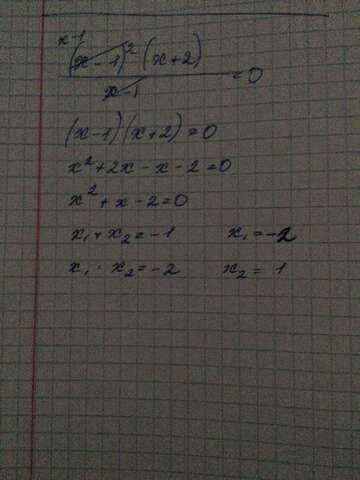 x-1
(x-1)² (x+2)
x-1 =0
(x-1)(x+2)=0
x²+2x-x-2=0
x²+x-2=0
x₁+x₂=-1 x₁=-2
x₁·x₂=-2 x₂=1